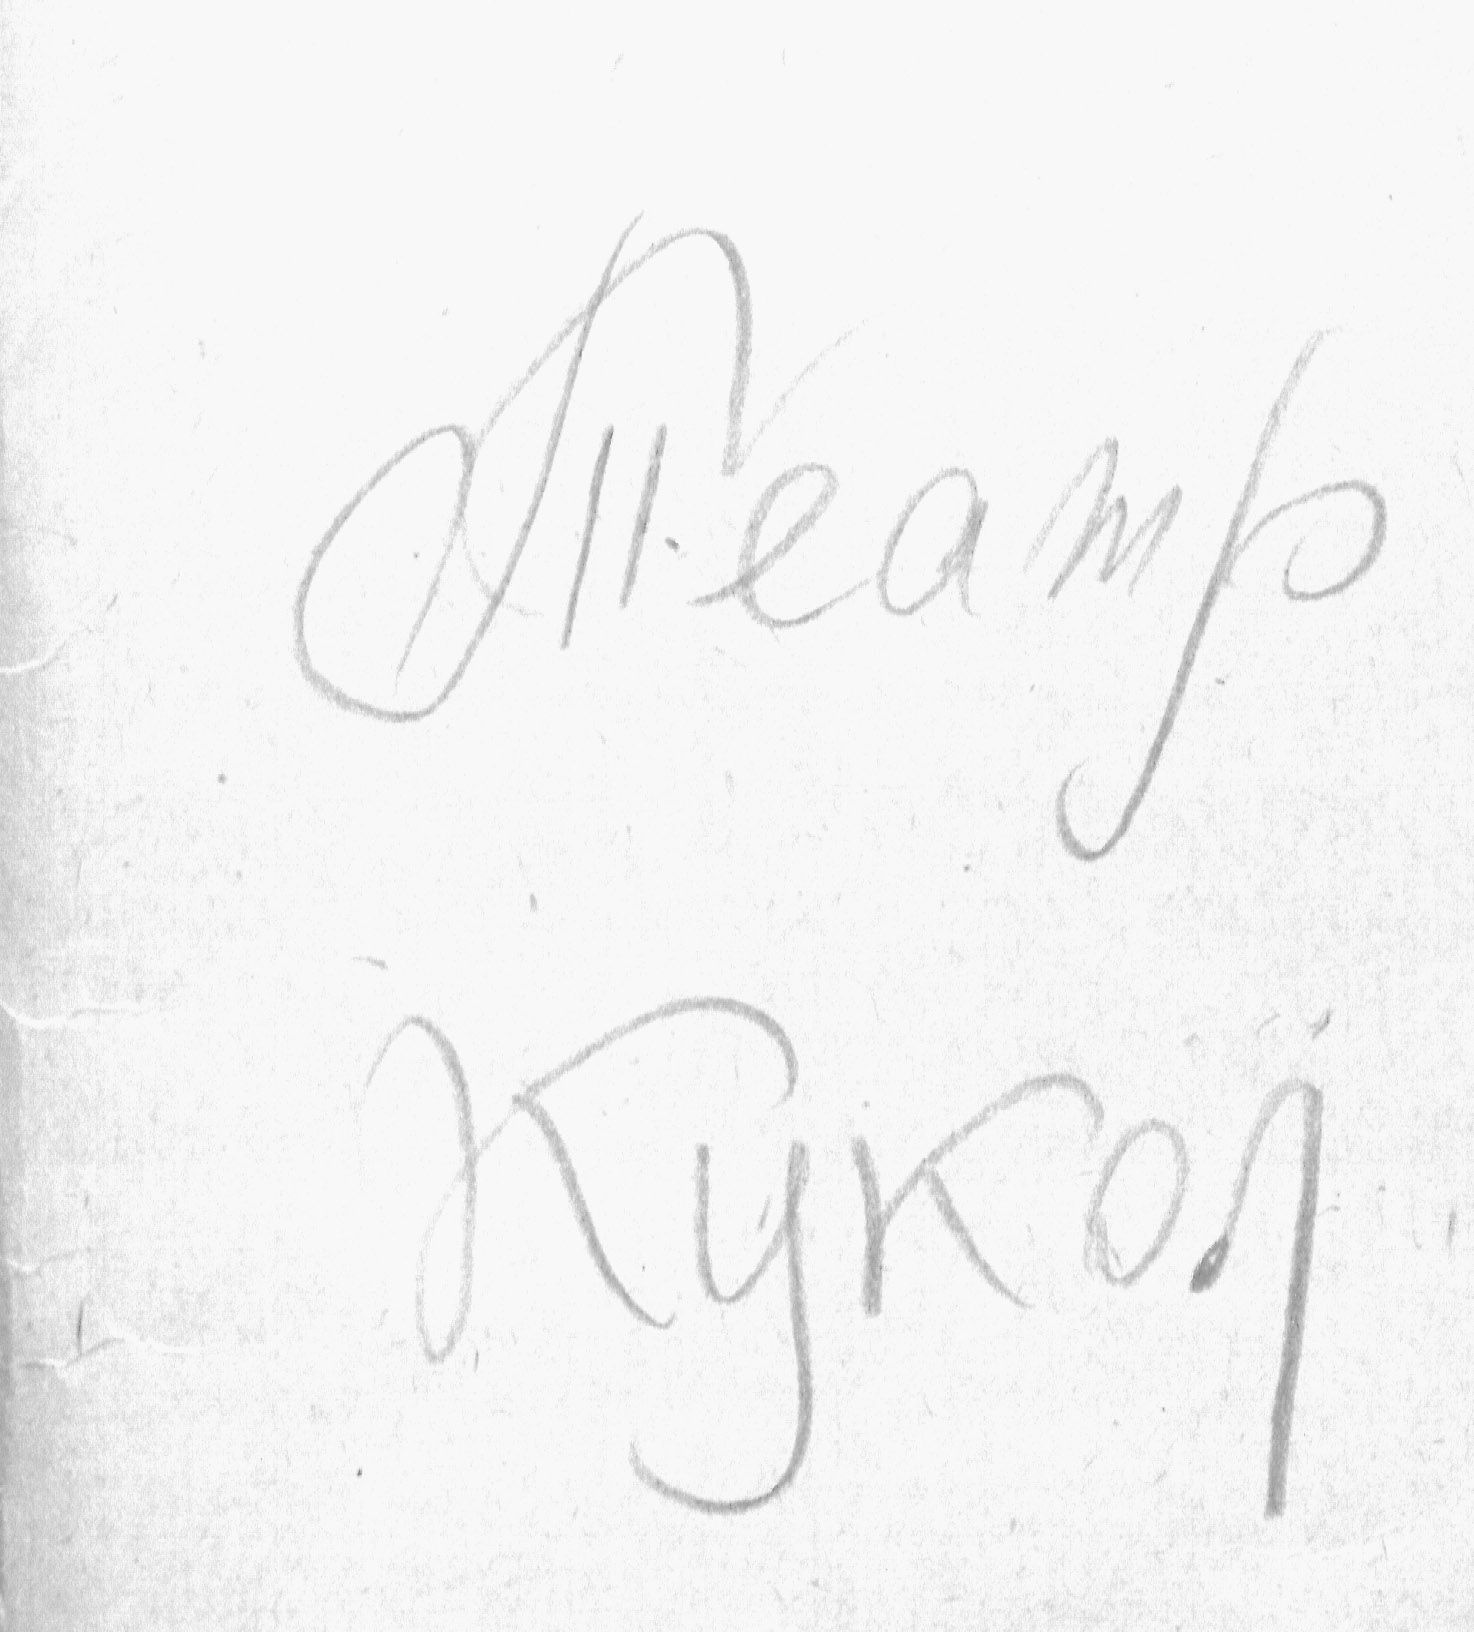 Театр
Кукол